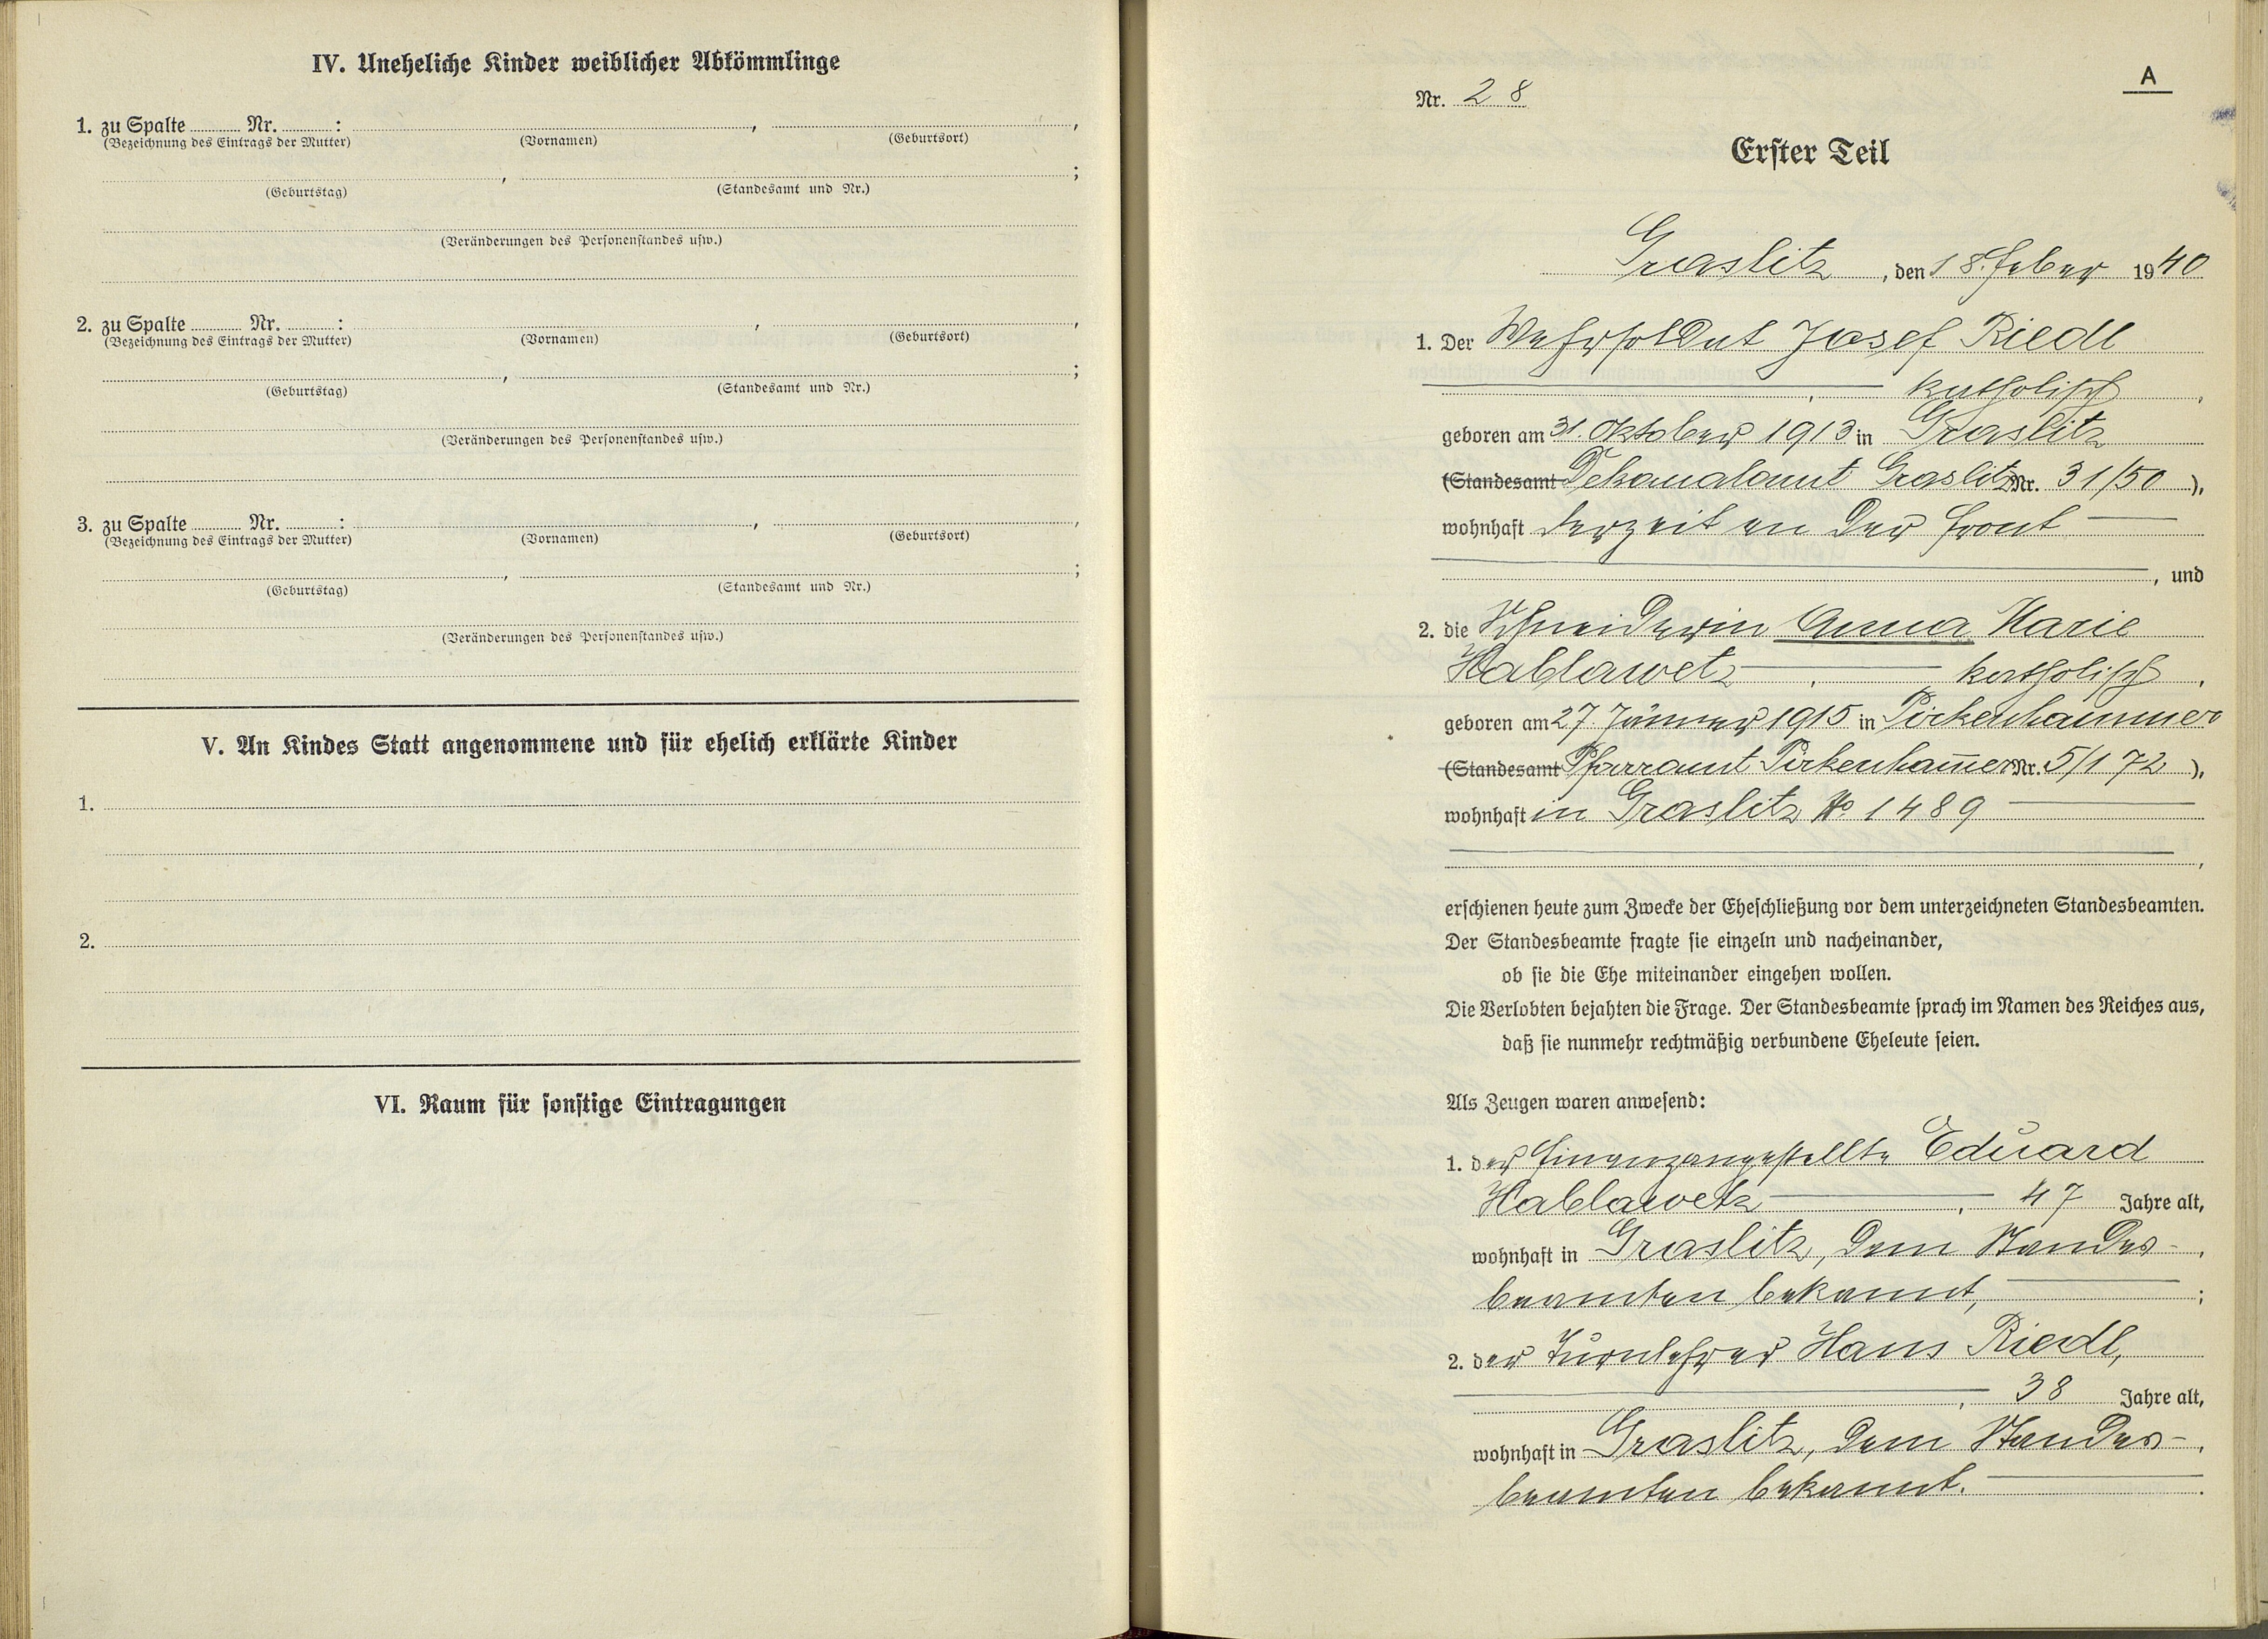 IV. Uneheliche Kinder weiblicher Abkömmlinge
1. zu Spalte ........ Nr. ........ : , ,
(Bezeichnung des Eintrags der Mutter) (Vornamen) (Geburtsort)
, ;
(Geburtstag) (Standesamt und Nr.)
(Veränderungen des Personenstandes usw.)
2. zu Spalte ........ Nr. ........ : , ,
(Bezeichnung des Eintrags der Mutter) (Vornamen) (Geburtsort)
, ;
(Geburtstag) (Standesamt und Nr.)
(Veränderungen des Personenstandes usw.)
3. zu Spalte ........ Nr. ........ : , ,
(Bezeichnung des Eintrags der Mutter) (Vornamen) (Geburtsort)
, ;
(Geburtstag) (Standesamt und Nr.)
(Veränderungen des Personenstandes usw.)
V. An Kindes Statt angenommene und für ehelich erklärte Kinder
1.
2.
VI. Raum für sonstige Eintragungen
A
Nr. 28
Erster Teil
Graslitz, den 18. Feber 1940
1. Der Wehrsoldat Josef Riedl
, katholisch,
geboren am 31. Oktober 1913 in Graslitz
(Standesamt Dekanalamt Graslitz Nr. 31/50),
wohnhaft derzeit an der Front
, und
2. die Schneiderin Anna Marie
Hablawetz, katholisch,
geboren am 27. Jänner 1915 in Pirkenhammer
(Standesamt Pfarramt Pirkenham̅er Nr. 5/172),
wohnhaft in Graslitz No. 1489
,
erschienen heute zum Zwecke der Eheschließung vor dem unterzeichneten Standesbeamten.
Der Standesbeamte fragte sie einzeln und nacheinander,
ob sie die Ehe miteinander eingehen wollen.
Die Verlobten bejahten die Frage. Der Standesbeamte sprach im Namen des Reiches aus,
daß sie nunmehr rechtmäßig verbundene Eheleute seien.
Als Zeugen waren anwesend:
1. der Finanzangestellte Eduard
Hablawetz, 47 Jahre alt,
wohnhaft in Graslitz, dem Standes-,
beamten bekannt, ;
2. der Turnlehrer Hans Riedl,
, 38 Jahre alt,
wohnhaft in Graslitz, dem Standes-,
beamten bekannt. .